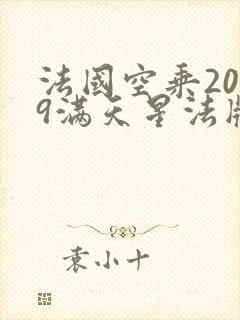 法國空乘20
9满天星法版
袁小十